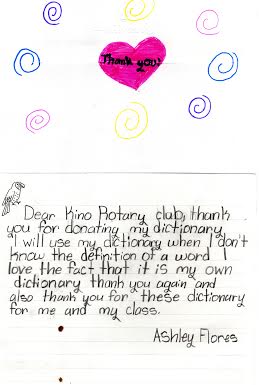 Thank you!
Dear Kino Rotary club, thank
you for donating my dictionary
I will use my dictionary when I don't
know the definition of a word I
love the fact that it is my own
dictionary thank you again and
also thank you for these dictionary
for me and my class.
Ashley Flores